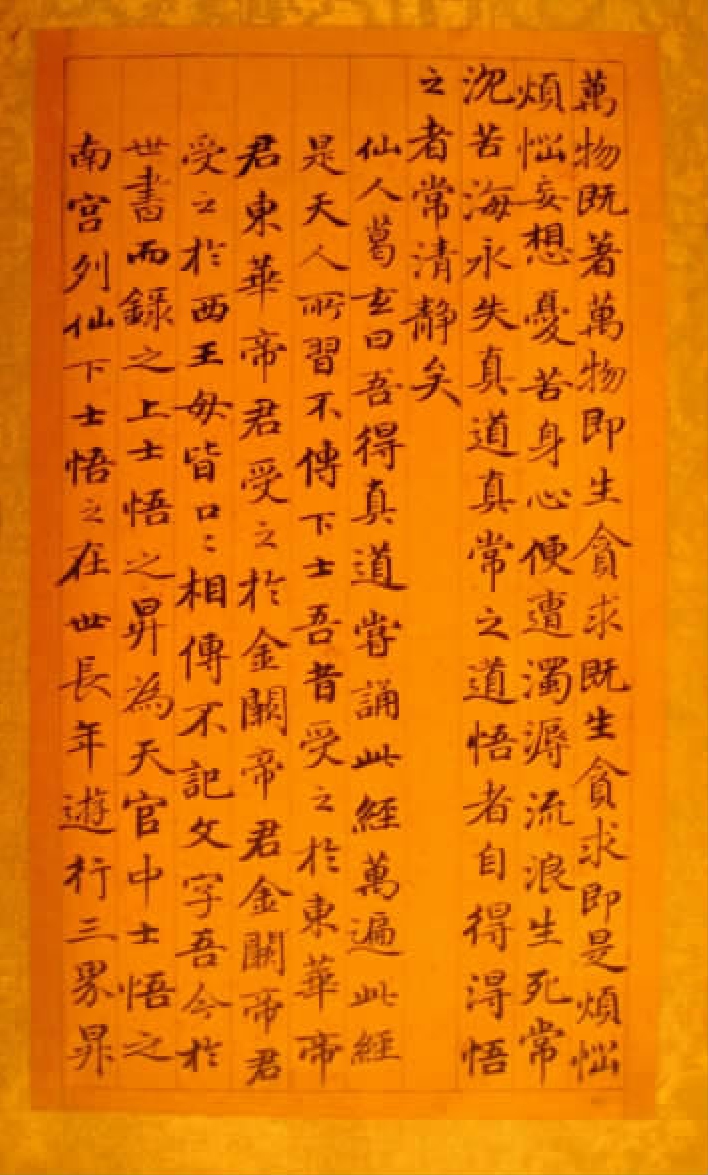 萬物既著萬物即生貪求既生貪求即是煩惱
煩惱妄想憂苦身心便遭濁溽流浪生死常
沈苦海永失真道真常之道悟者自得得悟
之者常清靜矣
仙人葛玄曰吾得真道嘗誦此經萬遍此經
是天人所習不傳下士吾昔受之於東華帝
君東華帝君受之於金闕帝君金闕帝君
受之於西王母皆口〻相傳不記文字吾今於
世書而錄之上士悟之昇為天官中士悟之
南宮列仙下士悟之在世長年遊行三界昇